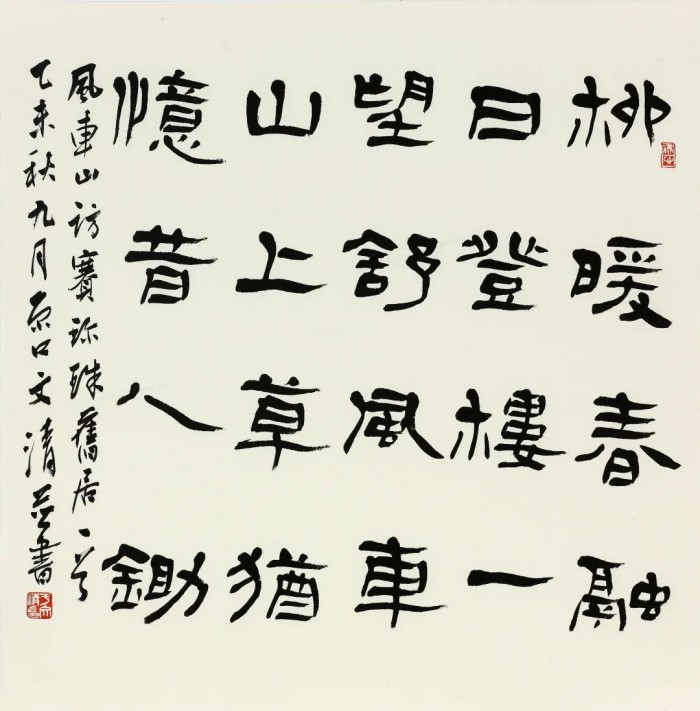 柳暖春融
日登樓一
望舒風車
山上草猶
憶昔人鋤
風車山訪賽珍珠舊居一首
乙未秋九月京口文清並書